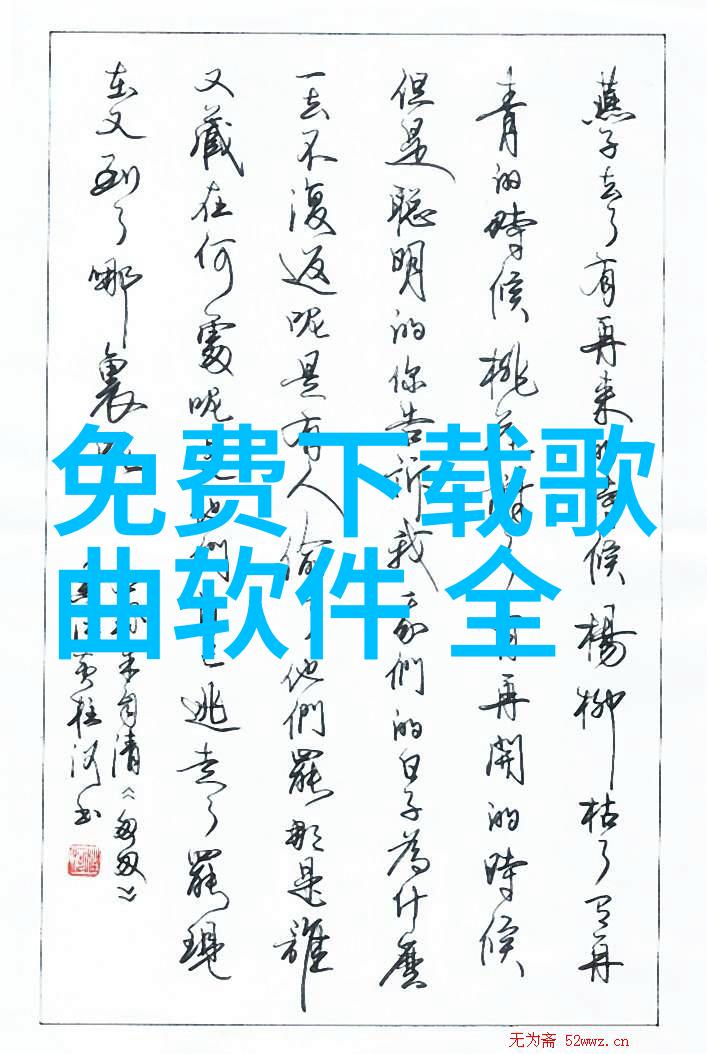 燕子去了有再来的時候楊柳枯了有再
青的時候桃花謝了有再開的時候
但是聪明的你告訴我我們的日子為什麼
一去不復返呢是有人偷了他們罷那是誰
又藏在何處呢是他們自己逃走了罷現
在又到了哪裏呢
朱自清《匆匆》
免费下载歌
曲软件 全
无为斋 52wwz.cn